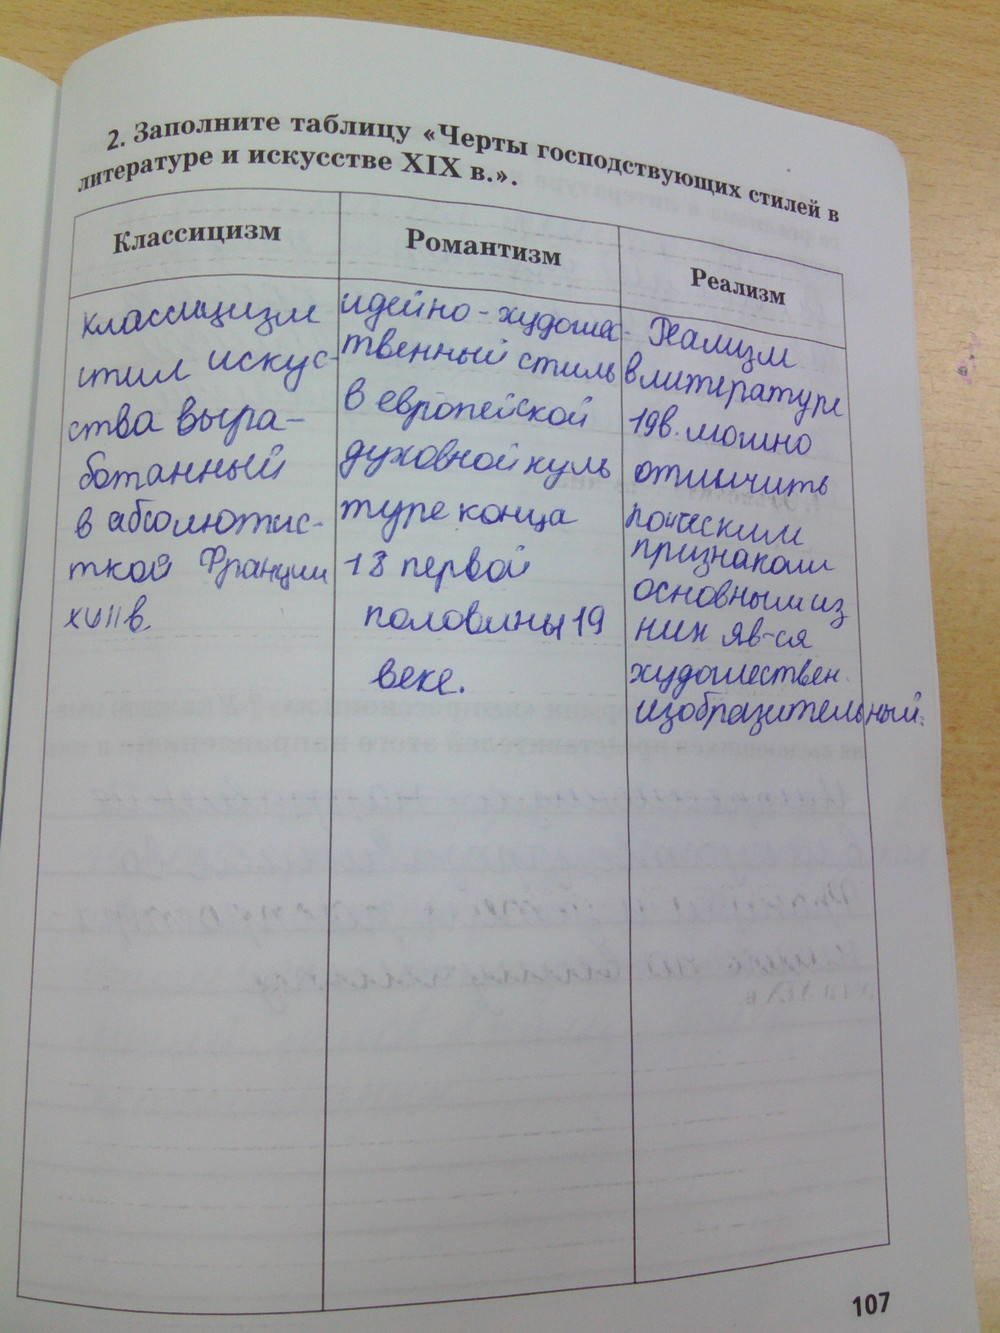 2. Заполните таблицу «Черты господствующих стилей в
литературе и искусстве XIX в.».
Классицизм
Классицизм
стил искус-
ства выра-
ботанный
в абсолютис-
ткой Франции
XVII в.
Романтизм
идейно-художес-
твенный стиль
в европейской
духовной куль
туре конца
18 первой
половины 19
веке.
Реализм
Реализм
в литературе
19в. можно
отличить
по
признакам
основным из
них яв-ся
художествен.
изобразительный.
107